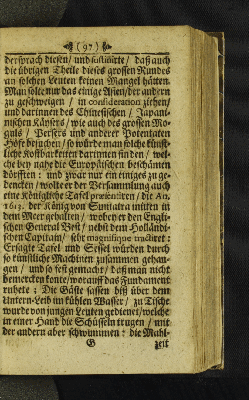 (97)
dersprach diesen / und ſuſtinirte / daß auch
die übrigen Theile dieses grossen Rundes
an solchen Leuten keinen Mangel hätten.
Man solte nur das einige Asien / der andern
zu geschweigen / in conſideration ziehen /
und darinnen des Chinesischen / Japani-
nischen Käysers / wie auch des grossen Mo-
guls / Persers und anderer Potentaten
Höfe besuchen / so würde man solche künst-
liche Kostbarkeiten darinnen finden / wel-
che bey nahe die Europäischen beschämen
dörfften : und zwar nur ein einiges zu ge-
dencken / wolte er der Versammlung auch
eine Königliche Tafel præſentiren / die Ao.
1613. der König von Sumatra mitten in
dem Meer gehalten / wobey er den Engli-
schen General Best / nebst dem Holländi-
schen Capitain / sehr magnifique tractiret :
Ersagte Tafel und Sessel würden durch
so künstliche Machinen zusammen gehan-
gen / und so fest gemacht / daß man nicht
bemercken konte / worauff das Fundament
ruhete ; Die Gäste sassen biß über dem
Untern-Leib im kühlen Wasser / zu Tische
wurde von jungen Leuten gedienet / welche
in einer Hand die Schüsseln trugen / mit
der andern aber schwummen : die Mahl-
G zeit